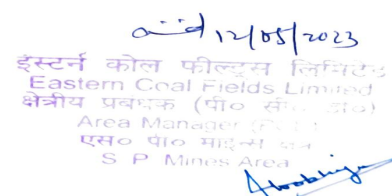 12/05/2023
ईस्टर्न कोल फील्ड्स लिमिटेड
Eastern Coal Fields Limited
क्षेत्रीय प्रबंधक (पी०
Area Manager
एस० पी० माइन्स
S P Mines Area